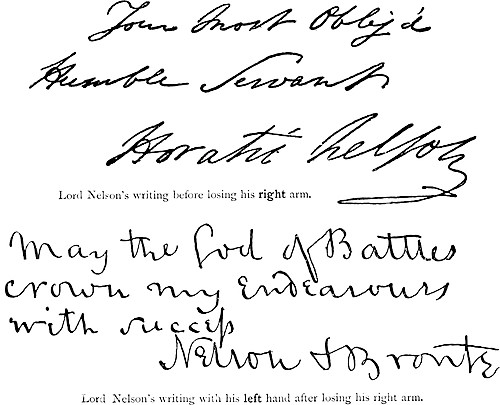 Your most Oblig'd
Humble Servant
Horatio Nelson
Lord Nelson's writing before losing his right arm.
May the God of Battles
crown my Endeavours
with success
Nelson & Bronte
Lord Nelson's writing with his left hand after losing his right arm.